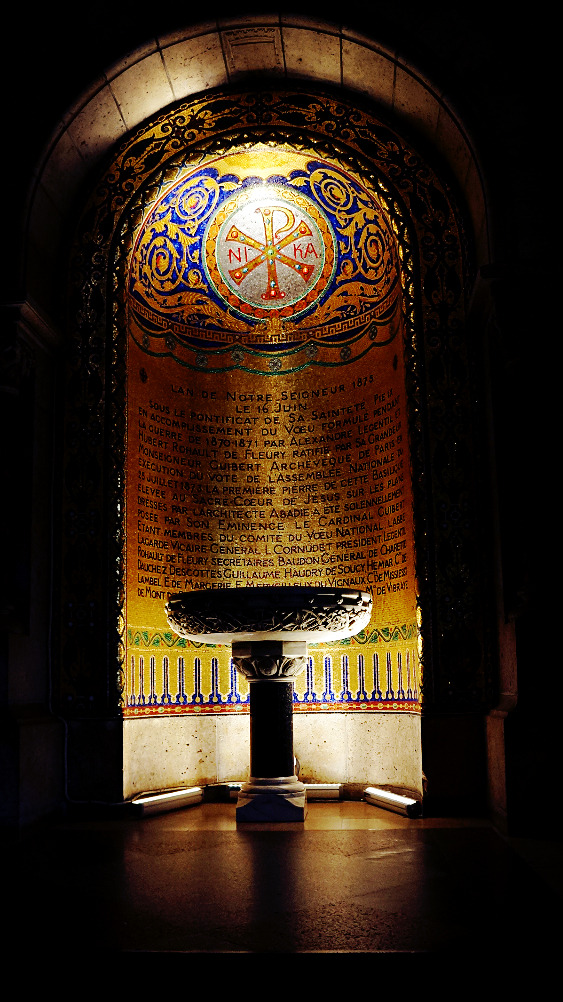 NI KA.
LAN DE NOTRE SEIGNEUR 1875
LE 16 JUIN
SOUS LE PONTIFICAT DE SA SAINTETE PIE IX
EN ACCOMPLISSEMENT DU VOEU FORMULE PENDANT
LA GUERRE DE 1870-1871 PAR ALEXANDRE LEGENTIL ET
HUBERT ROHAULT DE FLEURY RATIFIE PAR SA GRANDEUR
MONSEIGNEUR GUIBERT ARCHEVEQUE DE PARIS EN
EXECUTION DU VOTE DE L'ASSEMBLEE NATIONALE DU
25 JUILLET 1873 LA PREMIERE PIERRE DE CETTE BASILIQUE
ELEVEE AU SACRE COEUR DE JESUS SUR LES PLANS
DRESSES PAR L'ARCHITECTE ABADIE A ETE SOLENNELLEMENT
POSEE PAR SON EMINENCE LE CARDINAL GUIBERT
ETANT MEMBRES DU COMITE DU VOEU NATIONAL L'ABBE
LAGARDE VICAIRE GENERAL L. CORNUDET PRESIDENT LEGENTIL
ROHAULT DE FLEURY SECRETAIRES BAUDON GENERAL DE CHARETTE
DAUCHEZ DESCOTTES GUILLEMIN HAUDRY DE SOUCY HEMAR Cte
LAMBEL E. DE MARGERIE E. MERVEILLEUX DU VIGNAUX C. MERVEIL
DE MONT Mis DE VIBRAYE